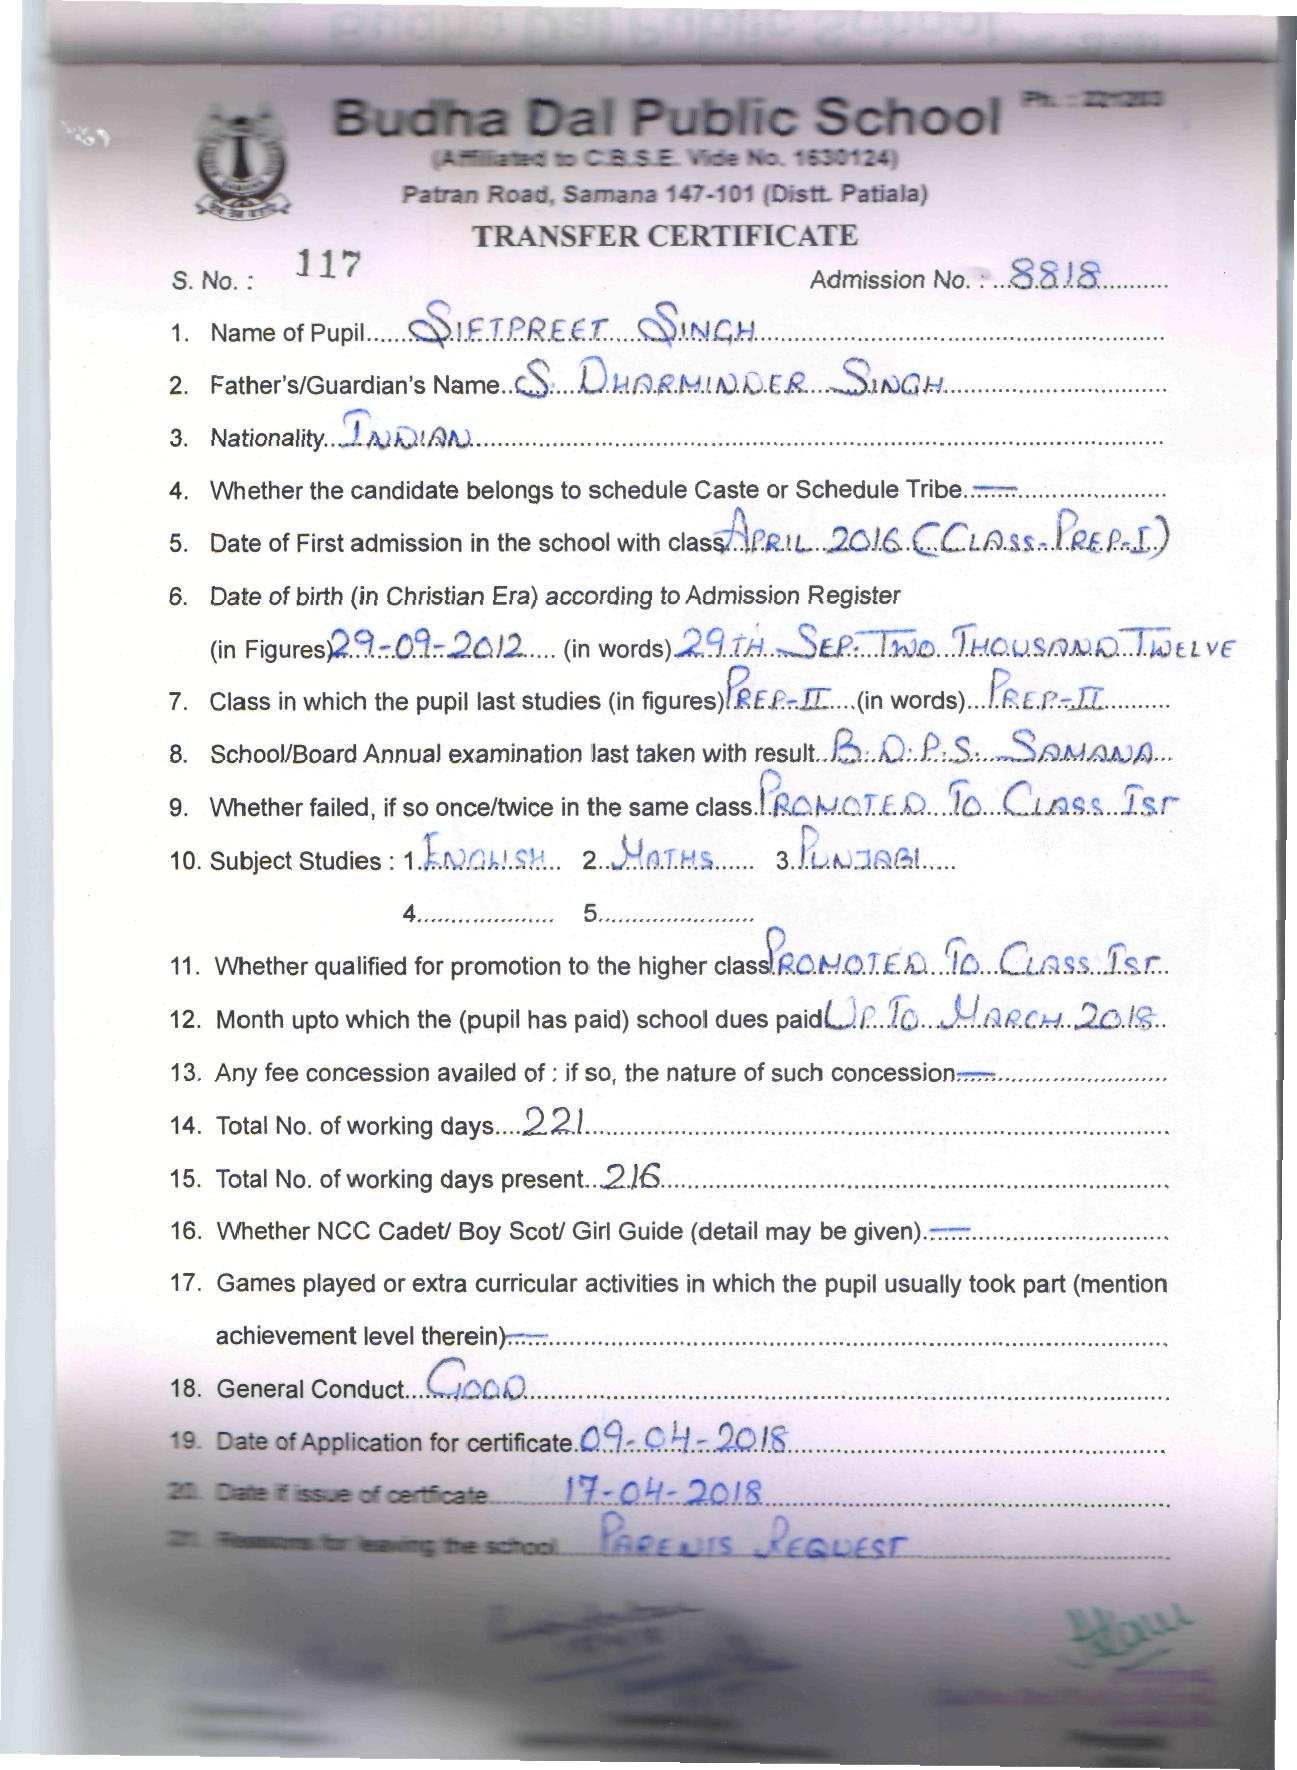 Budha Dal Public School
Ph. : 221203
(Affiliated to C.B.S.E. Vide No. 1630124)
Patran Road, Samana 147-101 (Distt. Patiala)
TRANSFER CERTIFICATE
S. No. : 117 Admission No. : 8818
1. Name of Pupil SIFTPREET SINGH
2. Father's/Guardian's Name S. DHARMINDER SINGH
3. Nationality INDIAN
4. Whether the candidate belongs to schedule Caste or Schedule Tribe —
5. Date of First admission in the school with class APRIL 2016 (CLASS-PREP-I)
6. Date of birth (in Christian Era) according to Admission Register
(in Figures) 29-09-2012 (in words) 29TH SEP. TWO THOUSAND TWELVE
7. Class in which the pupil last studies (in figures) PREP-II (in words) PREP-II
8. School/Board Annual examination last taken with result B.D.P.S. SAMANA
9. Whether failed, if so once/twice in the same class PROMOTED TO CLASS IST
10. Subject Studies : 1. ENGLISH 2. MATHS 3. PUNJABI
4. 5.
11. Whether qualified for promotion to the higher class PROMOTED TO CLASS IST
12. Month upto which the (pupil has paid) school dues paid UP TO MARCH 2018
13. Any fee concession availed of : if so, the nature of such concession —
14. Total No. of working days 221
15. Total No. of working days present 216
16. Whether NCC Cadet/ Boy Scot/ Girl Guide (detail may be given) —
17. Games played or extra curricular activities in which the pupil usually took part (mention
achievement level therein) —
18. General Conduct GOOD
19. Date of Application for certificate 09-04-2018
20. Date if issue of certficate 17-04-2018
21. Reasons for leaving the school PARENTS REQUEST